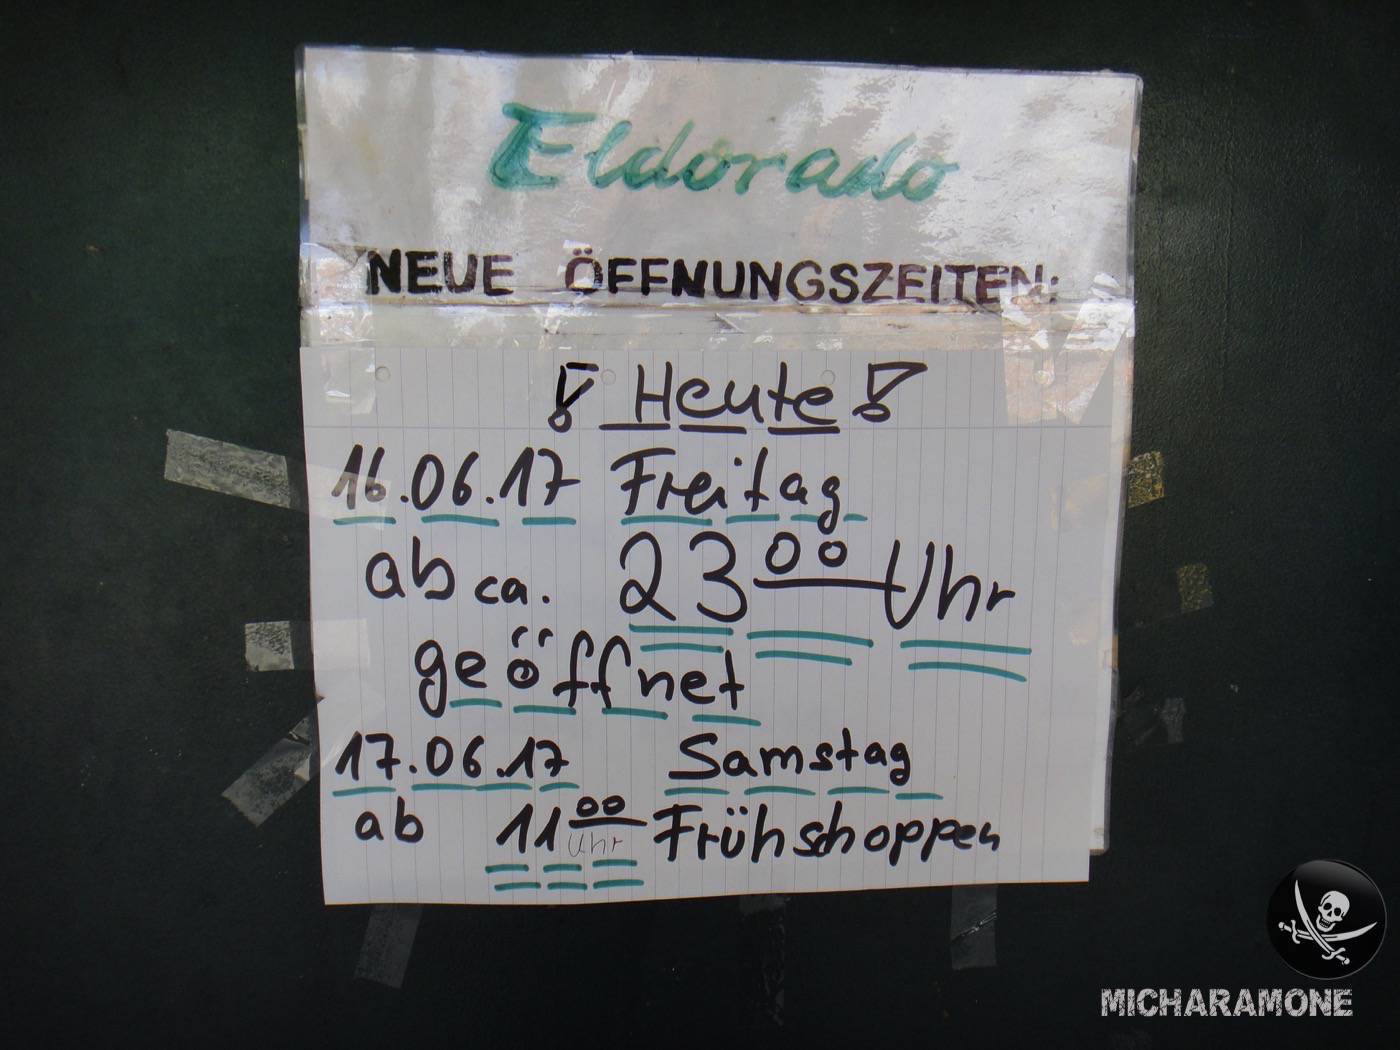 Eldorado
NEUE ÖFFNUNGSZEITEN:
! Heute !
16.06.17 Freitag
ab ca. 23⁰⁰ Uhr
geöffnet
17.06.17 Samstag
ab 11⁰⁰ Uhr Frühshoppen
MICHARAMONE